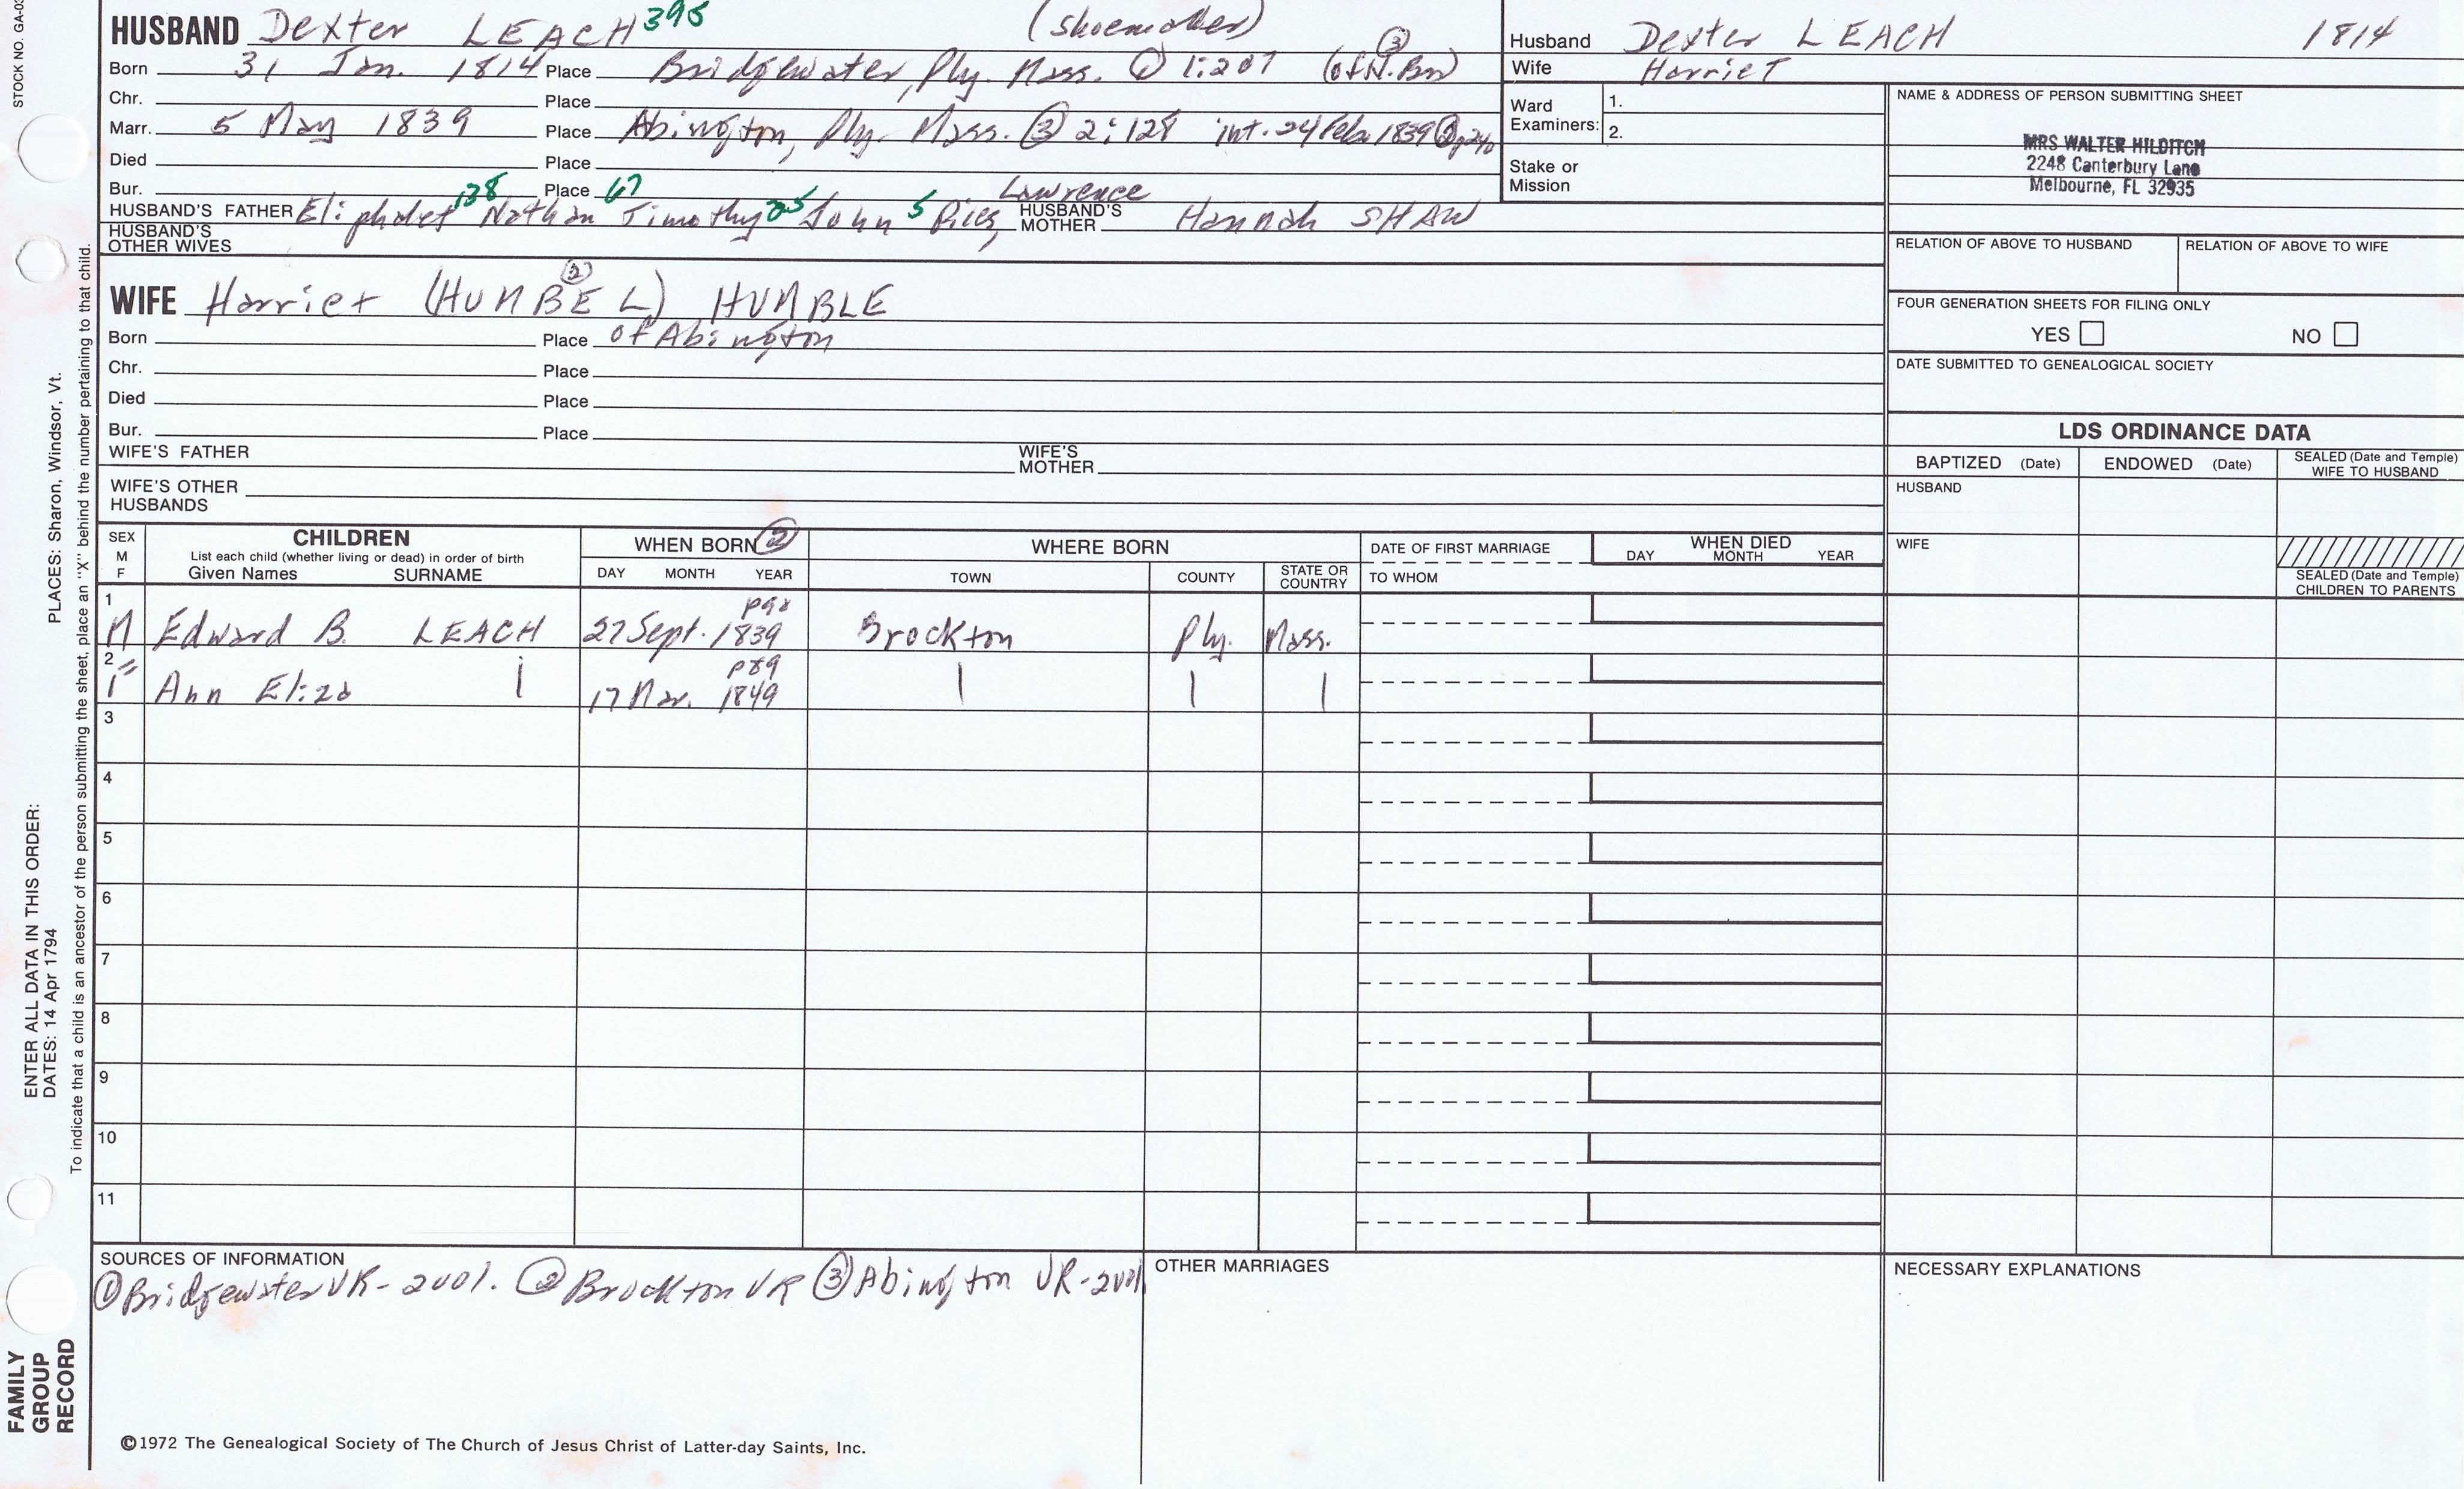 STOCK NO. GA-03
HUSBAND Dexter LEACH 395 (Shoemaker)
Born 31 Jan. 1814 Place Bridgewater, Ply. Mass. ① 1:207 (of N. Bn) ③
Chr. Place
Marr. 5 May 1839 Place Abington, Ply. Mass. ③ 2:128 int. 24 Feb. 1839
Died Place
Bur. Place
HUSBAND'S FATHER Eliphalet 138 Nathan 67 Timothy 25 John 5 Giles, Lawrence HUSBAND'S MOTHER Hannah SHAW
HUSBAND'S OTHER WIVES
Husband Dexter LEACH 1814
Wife Harriet
Ward Examiners: 1.
2.
Stake or Mission
NAME & ADDRESS OF PERSON SUBMITTING SHEET
MRS WALTER HILDITCH
2248 Canterbury Lane
Melbourne, FL 32935
RELATION OF ABOVE TO HUSBAND RELATION OF ABOVE TO WIFE
FOUR GENERATION SHEETS FOR FILING ONLY
YES NO
DATE SUBMITTED TO GENEALOGICAL SOCIETY
WIFE Harriet (HUMBEL) ② HUMBLE
Born Place of Abington
Chr. Place
Died Place
Bur. Place
WIFE'S FATHER WIFE'S MOTHER
WIFE'S OTHER HUSBANDS
LDS ORDINANCE DATA
BAPTIZED (Date) ENDOWED (Date) SEALED (Date and Temple) WIFE TO HUSBAND
HUSBAND
WIFE
SEALED (Date and Temple) CHILDREN TO PARENTS
SEX M F
CHILDREN
List each child (whether living or dead) in order of birth
Given Names SURNAME
WHEN BORN ②
DAY MONTH YEAR
WHERE BORN
TOWN COUNTY STATE OR COUNTRY
DATE OF FIRST MARRIAGE
TO WHOM
WHEN DIED
DAY MONTH YEAR
1 M Edward B. LEACH 27 Sept. 1839 Brockton Ply. Mass.
2 F Ann Eliza 17 Mar. 1849 p89
3
4
5
6
7
8
9
10
11
SOURCES OF INFORMATION
① Bridgewater VR-2vol. ② Brockton VR ③ Abington VR-2vol
OTHER MARRIAGES
NECESSARY EXPLANATIONS
©1972 The Genealogical Society of The Church of Jesus Christ of Latter-day Saints, Inc.
PLACES: Sharon, Windsor, Vt.
ENTER ALL DATA IN THIS ORDER:
DATES: 14 Apr 1794
To indicate that a child is an ancestor of the person submitting the sheet, place an "X" behind the number pertaining to that child.
FAMILY
GROUP
RECORD